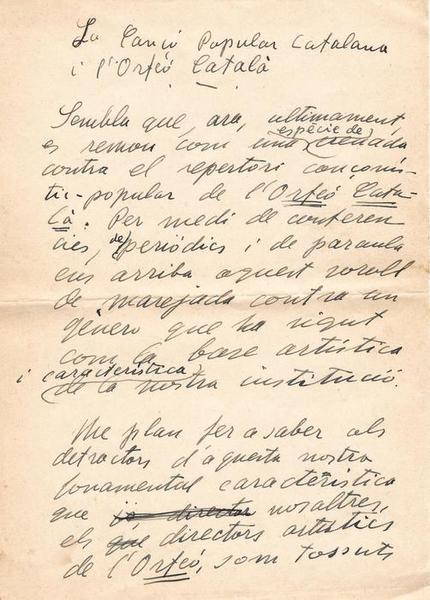 La Cançó Popular Catalana
i l'Orfeó Català
Sembla que, ara, ultimament,
es remou com una espècie de
contra el repertori cançonís-
tic-popular de l'Orfeó Cata-
là. Per medi de conferen-
cies, de periòdics i de paraula
ens arriba aquest soroll
de marejada contra un
gènero que ha sigut
com la base artística
i característica
de la nostra institució.
Me plau fer a saber als
detractors d'aquesta nostra
fonamental característica
que nosaltres,
els directors artístics
de l'Orfeó, som tossuts